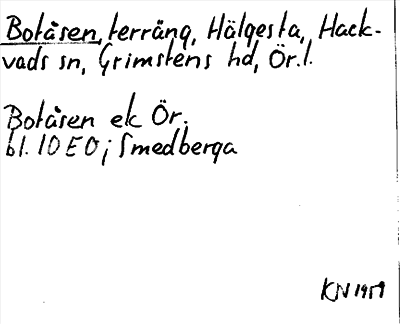 Botåsen, terräng, Hälgesta, Hack-
vads sn, Grimstens hd, Ör.l.
Botåsen ek Ör.
bl. 10 E 0; Smedberga
KN 1959